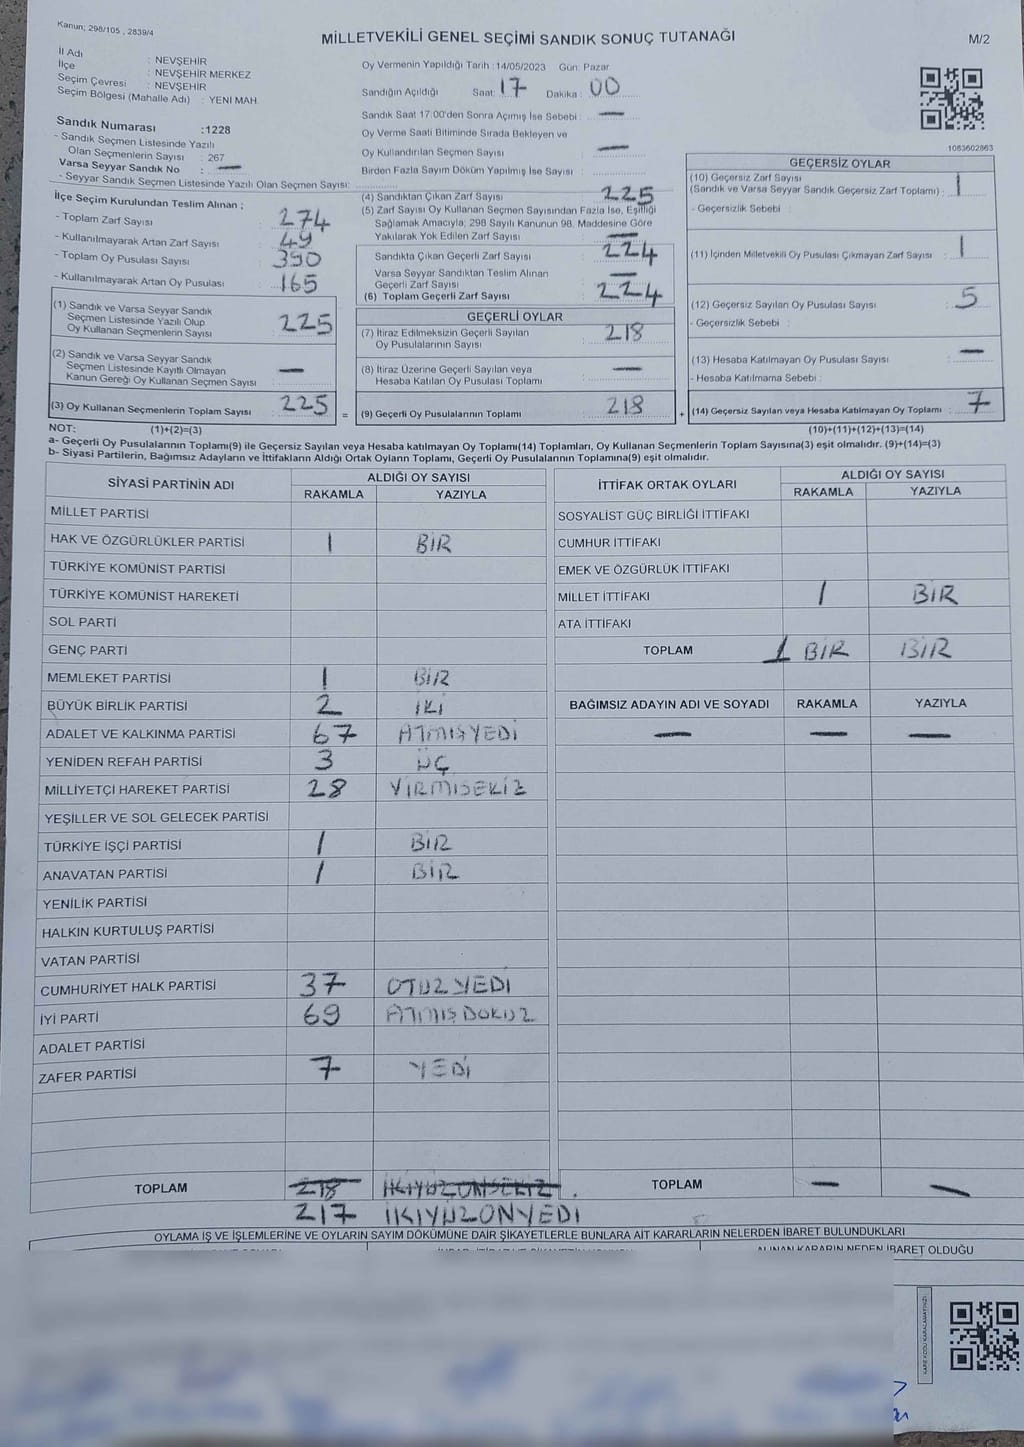 Kanun; 298/105 , 2839/4
MİLLETVEKİLİ GENEL SEÇİMİ SANDIK SONUÇ TUTANAĞI
M/2
İl Adı : NEVŞEHİR
İlçe : NEVŞEHİR MERKEZ
Seçim Çevresi : NEVŞEHİR
Seçim Bölgesi (Mahalle Adı) : YENİ MAH.
Sandık Numarası :1228
- Sandık Seçmen Listesinde Yazılı
Olan Seçmenlerin Sayısı : 267
Varsa Seyyar Sandık No : —
- Seyyar Sandık Seçmen Listesinde Yazılı Olan Seçmen Sayısı:
Oy Vermenin Yapıldığı Tarih :14/05/2023 Gün: Pazar
Sandığın Açıldığı Saat: 17 Dakika : 00
Sandık Saat 17:00'den Sonra Açımış İse Sebebi : —
Oy Verme Saati Bitiminde Sırada Bekleyen ve
Oy Kullandırılan Seçmen Sayısı : —
Birden Fazla Sayım Döküm Yapılmış İse Sayısı :
1083602863
İlçe Seçim Kurulundan Teslim Alınan ;
- Toplam Zarf Sayısı : 274
- Kullanılmayarak Artan Zarf Sayısı : 49
- Toplam Oy Pusulası Sayısı : 390
- Kullanılmayarak Artan Oy Pusulası : 165
(1) Sandık ve Varsa Seyyar Sandık
Seçmen Listesinde Yazılı Olup
Oy Kullanan Seçmenlerin Sayısı : 225
(2) Sandık ve Varsa Seyyar Sandık
Seçmen Listesinde Kayıtlı Olmayan
Kanun Gereği Oy Kullanan Seçmen Sayısı : —
(3) Oy Kullanan Seçmenlerin Toplam Sayısı : 225 =
(4) Sandıktan Çıkan Zarf Sayısı : 225
(5) Zarf Sayısı Oy Kullanan Seçmen Sayısından Fazla İse, Eşitliği
Sağlamak Amacıyla; 298 Sayılı Kanunun 98. Maddesine Göre
Yakılarak Yok Edilen Zarf Sayısı : —
Sandıkta Çıkan Geçerli Zarf Sayısı : 224
Varsa Seyyar Sandıktan Teslim Alınan
Geçerli Zarf Sayısı : —
(6) Toplam Geçerli Zarf Sayısı : 224
GEÇERLİ OYLAR
(7) İtiraz Edilmeksizin Geçerli Sayılan
Oy Pusulalarının Sayısı : 218
(8) İtiraz Üzerine Geçerli Sayılan veya
Hesaba Katılan Oy Pusulası Toplamı : —
(9) Geçerli Oy Pusulalarının Toplamı : 218 +
GEÇERSİZ OYLAR
(10) Geçersiz Zarf Sayısı
(Sandık ve Varsa Seyyar Sandık Geçersiz Zarf Toplamı) : 1
- Geçersizlik Sebebi :
(11) İçinden Milletvekili Oy Pusulası Çıkmayan Zarf Sayısı : 1
(12) Geçersiz Sayılan Oy Pusulası Sayısı : 5
- Geçersizlik Sebebi :
(13) Hesaba Katılmayan Oy Pusulası Sayısı : —
- Hesaba Katılmama Sebebi :
(14) Geçersiz Sayılan veya Hesaba Katılmayan Oy Toplamı : 7
NOT: (1)+(2)=(3) (10)+(11)+(12)+(13)=(14)
a- Geçerli Oy Pusulalarının Toplamı(9) ile Geçersiz Sayılan veya Hesaba katılmayan Oy Toplamı(14) Toplamları, Oy Kullanan Seçmenlerin Toplam Sayısına(3) eşit olmalıdır. (9)+(14)=(3)
b- Siyasi Partilerin, Bağımsız Adayların ve İttifakların Aldığı Ortak Oyların Toplamı, Geçerli Oy Pusulalarının Toplamına(9) eşit olmalıdır.
SİYASİ PARTİNİN ADI ALDIĞI OY SAYISI
RAKAMLA YAZIYLA
MİLLET PARTİSİ
HAK VE ÖZGÜRLÜKLER PARTİSİ 1 BİR
TÜRKİYE KOMÜNİST PARTİSİ
TÜRKİYE KOMÜNİST HAREKETİ
SOL PARTİ
GENÇ PARTİ
MEMLEKET PARTİSİ 1 BİR
BÜYÜK BİRLİK PARTİSİ 2 İKİ
ADALET VE KALKINMA PARTİSİ 67 ATMIŞYEDİ
YENİDEN REFAH PARTİSİ 3 ÜÇ
MİLLİYETÇİ HAREKET PARTİSİ 28 YİRMİSEKİZ
YEŞİLLER VE SOL GELECEK PARTİSİ
TÜRKİYE İŞÇİ PARTİSİ 1 BİR
ANAVATAN PARTİSİ 1 BİR
YENİLİK PARTİSİ
HALKIN KURTULUŞ PARTİSİ
VATAN PARTİSİ
CUMHURİYET HALK PARTİSİ 37 OTUZYEDİ
İYİ PARTİ 69 ATMIŞDOKUZ
ADALET PARTİSİ
ZAFER PARTİSİ 7 YEDİ
TOPLAM 218 İKİYÜZONSEKİZ
217 İKİYÜZONYEDİ
İTTİFAK ORTAK OYLARI ALDIĞI OY SAYISI
RAKAMLA YAZIYLA
SOSYALİST GÜÇ BİRLİĞİ İTTİFAKI
CUMHUR İTTİFAKI
EMEK VE ÖZGÜRLÜK İTTİFAKI
MİLLET İTTİFAKI 1 BİR
ATA İTTİFAKI
TOPLAM 1 BİR BİR
BAĞIMSIZ ADAYIN ADI VE SOYADI RAKAMLA YAZIYLA
— — —
TOPLAM — —
OYLAMA İŞ VE İŞLEMLERİNE VE OYLARIN SAYIM DÖKÜMÜNE DAİR ŞİKAYETLERLE BUNLARA AİT KARARLARIN NELERDEN İBARET BULUNDUKLARI
ALINAN KARARIN NEDEN İBARET OLDUĞU